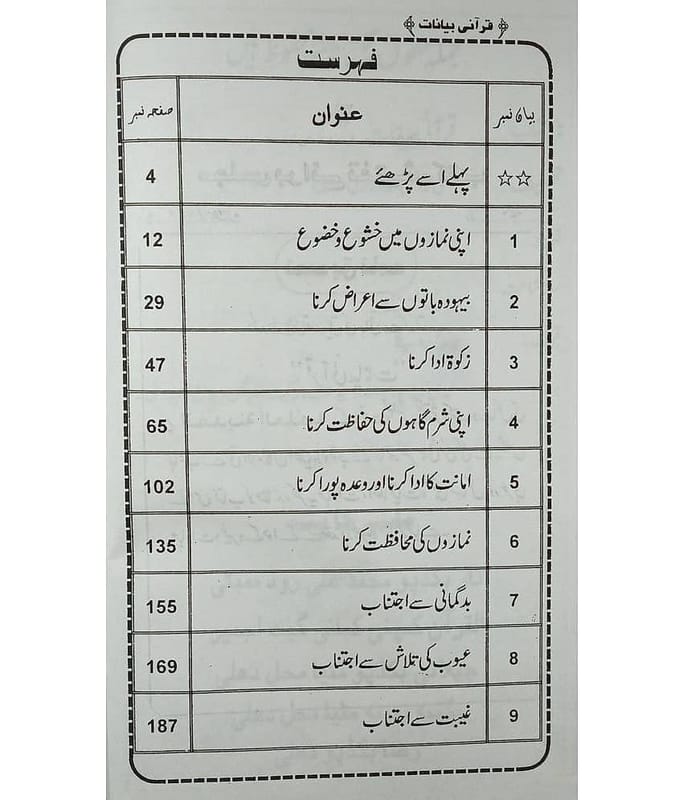 قرآنی بیانات
فہرست
بیان نمبر عنوان صفحہ نمبر
☆☆ پہلے اسے پڑھئے 4
1 اپنی نمازوں میں خشوع و خضوع 12
2 بیہودہ باتوں سے اعراض کرنا 29
3 زکوۃ ادا کرنا 47
4 اپنی شرم گاہوں کی حفاظت کرنا 65
5 امانت کا ادا کرنا اور وعدہ پورا کرنا 102
6 نمازوں کی محافظت کرنا 135
7 بدگمانی سے اجتناب 155
8 عیوب کی تلاش سے اجتناب 169
9 غیبت سے اجتناب 187